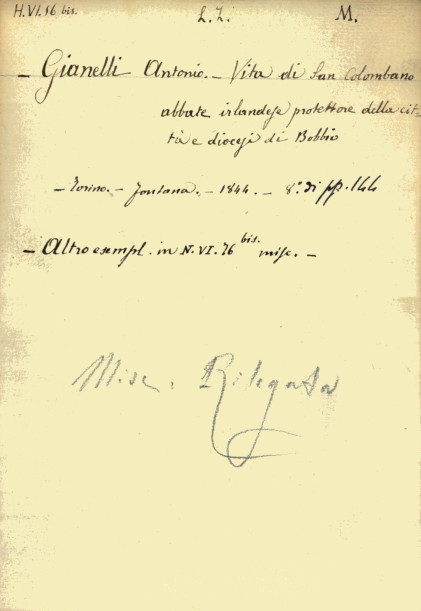 H.VI.56 bis. L.Z. M.
— Gianelli Antonio. — Vita di San Colombano
abbate irlandese protettore della cit-
tà e diocesi di Bobbio
— Torino. — Fontana. — 1844. — 8.° di pp. 144
— Altro esempl. in N. VI. 76 bis. misc. —
Misc. Rilegata